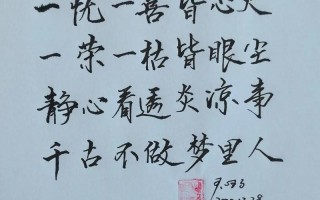 一忧一喜皆心火
一荣一枯皆眼尘
静心看透炎凉事
千古不做梦里人